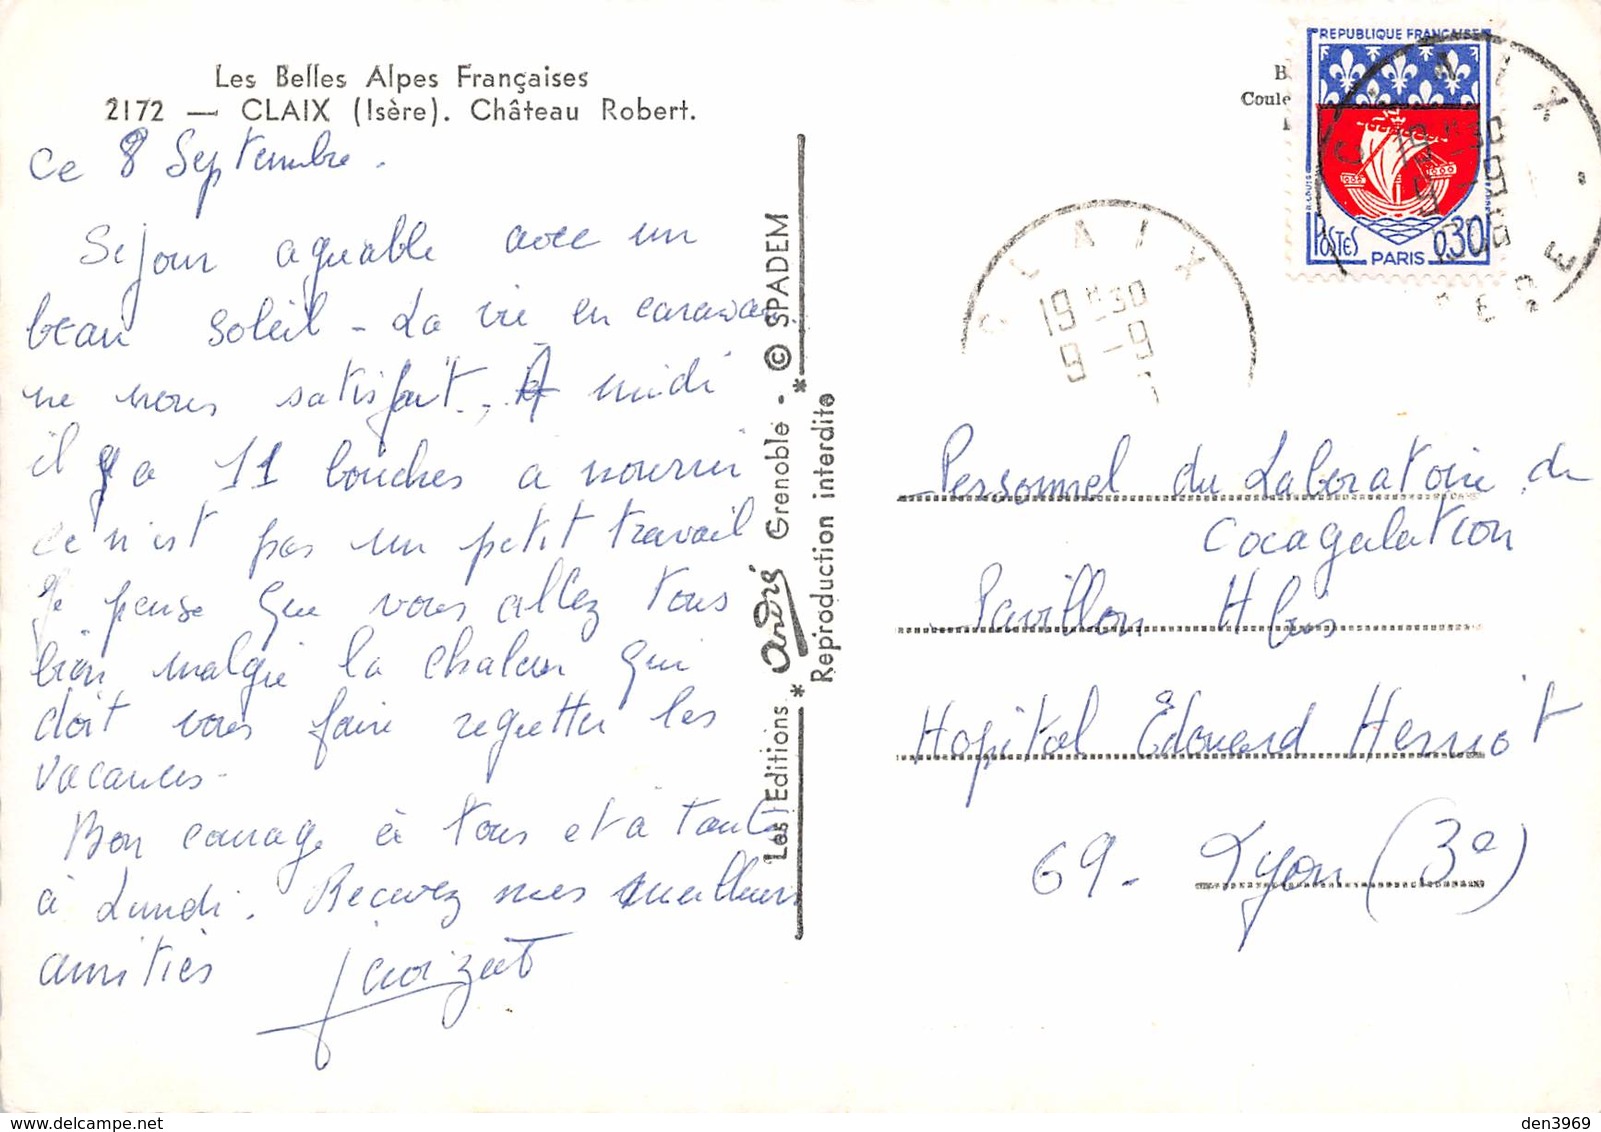 Les Belles Alpes Françaises
2172 — CLAIX (Isère). Château Robert.
Ce 8 Septembre.
Séjour agréable avec un
beau soleil - La vie en caravane
ne nous satisfait. A midi
il y a 11 bouches a nourrir
ce n'est pas un petit travail
Je pense que vous allez tous
bien malgré la chaleur qui
doit vous faire regretter les
vacances -
Bon courage à tous et à tout
à Lundi. Recevez mes meilleurs
amitiés
Les Editions * André Grenoble - © SPADEM *
Reproduction interdite
B
Coule
REPUBLIQUE FRANÇAISE
POSTES
0,30
PARIS
CLAIX
ISERE
CLAIX
19 H30
9 - 9
Personnel du Laboratoire de
Cocagulation
Pavillon H bis
Hopital Édouard Herriot
69 - Lyon (3e)
den3969